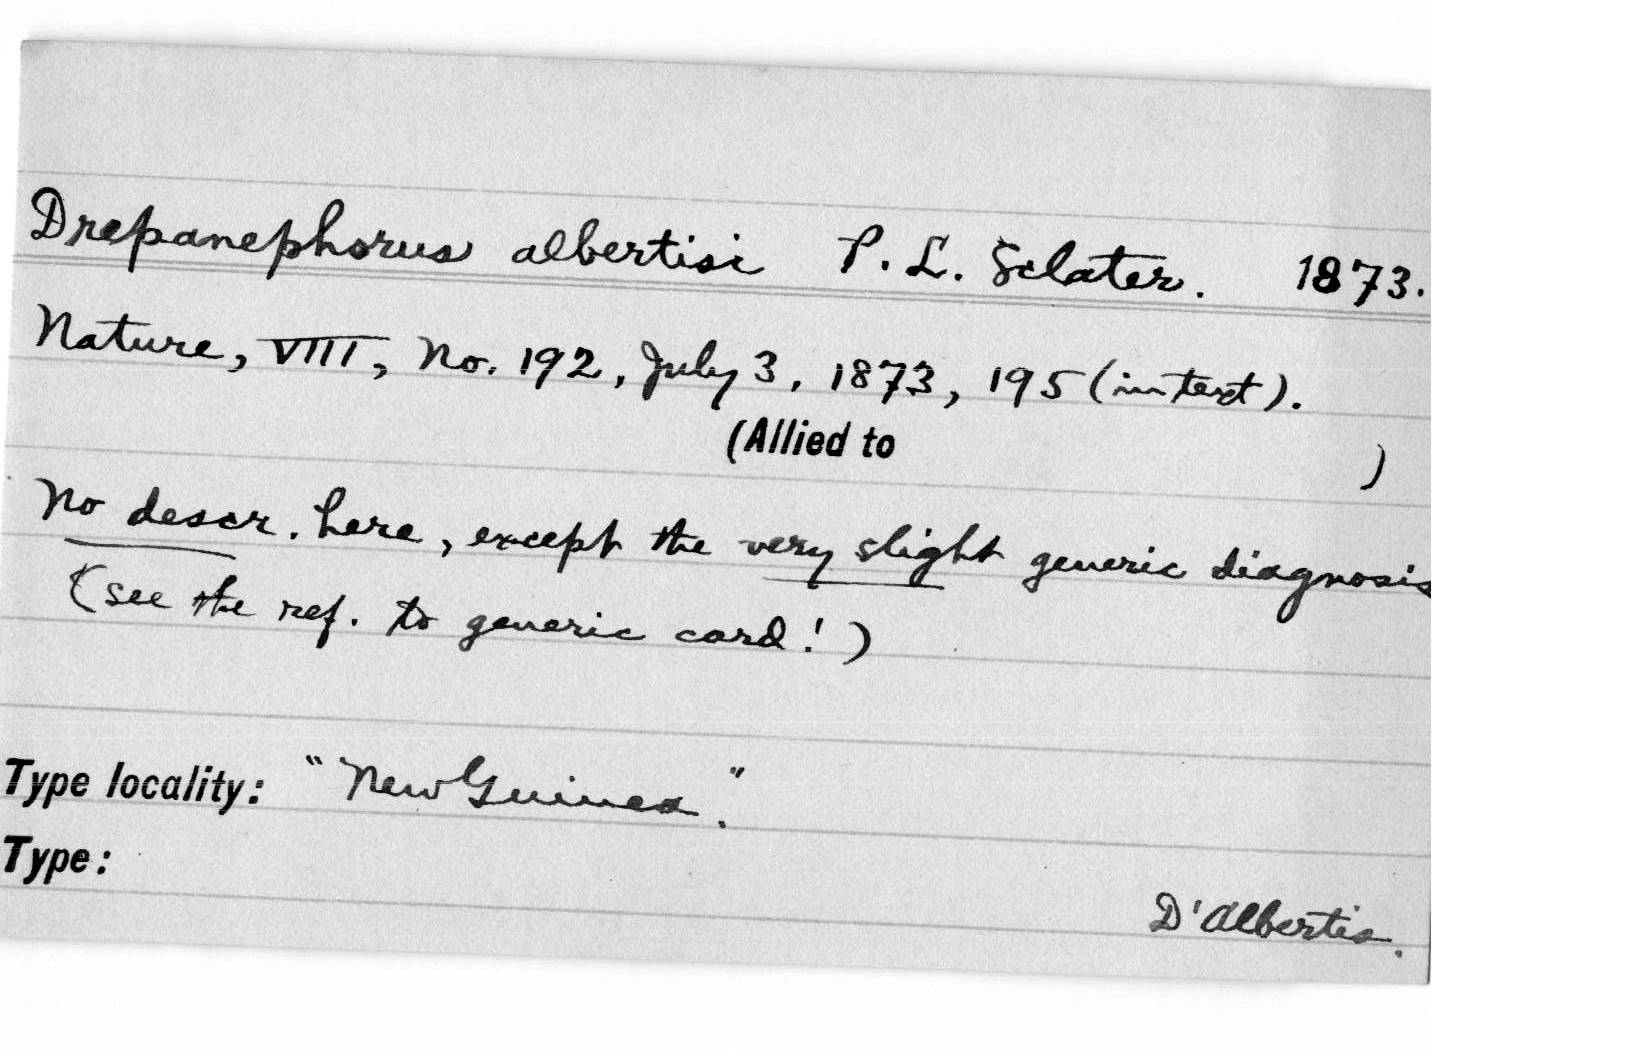 Drepanephorus albertisi P. L. Sclater. 1873.
Nature, VIII, No. 192, July 3, 1873, 195 (in text).
(Allied to )
No descr. here, except the very slight generic diagnosis
(see the ref. to generic card!)
Type locality: "New Guinea."
Type:
D'Albertis.